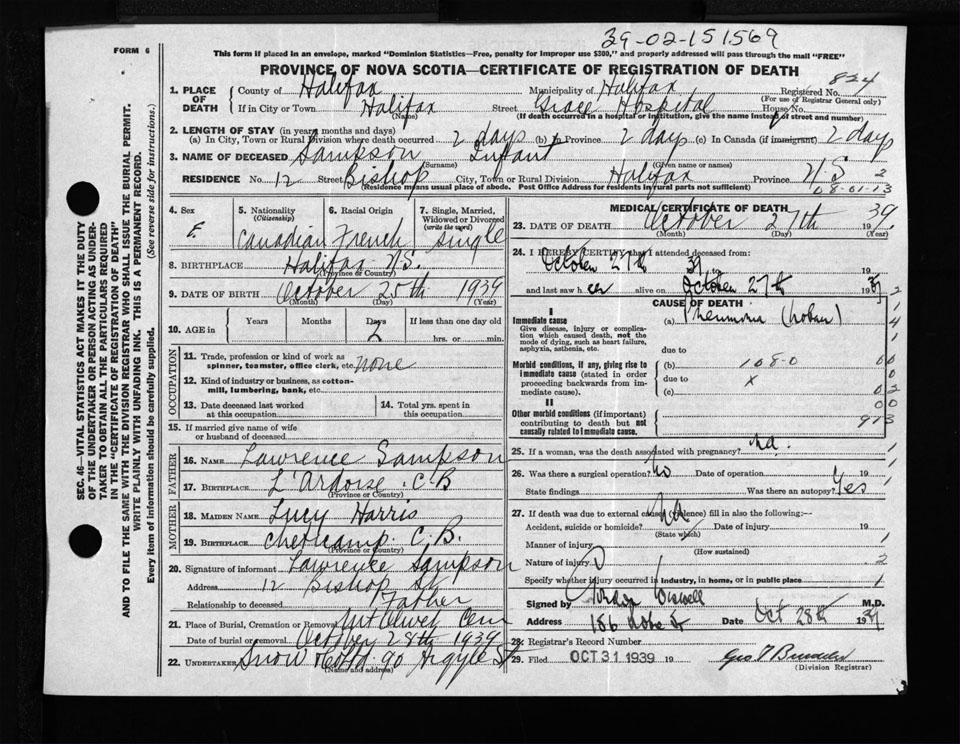 39-02-151569
FORM 6
This form if placed in an envelope, marked "Dominion Statistics—Free, penalty for improper use $300," and properly addressed will pass through the mail "FREE"
PROVINCE OF NOVA SCOTIA—CERTIFICATE OF REGISTRATION OF DEATH
824
1. PLACE OF DEATH
County of Halifax Municipality of Halifax Registered No.
(For use of Registrar General only)
If in City or Town Halifax Street Grace Hospital House No.
(Name) (If death occurred in a hospital or institution, give the name instead of street and number)
2. LENGTH OF STAY (in years, months and days)
(a) In City, Town or Rural Division where death occurred 2 days (b) In Province 2 days (c) In Canada (if immigrant) 2 days
3. NAME OF DECEASED Sampson Infant
(Surname) (Given name or names)
RESIDENCE No. 12 Street Bishop City, Town or Rural Division Halifax Province N S 2
(Residence means usual place of abode. Post Office Address for residents in rural parts not sufficient)
08-01-13
4. Sex F.
5. Nationality (Citizenship) Canadian
6. Racial Origin French
7. Single, Married, Widowed or Divorced (write the word) Single
8. BIRTHPLACE Halifax N.S.
(Province or Country)
9. DATE OF BIRTH October 25th 1939
(Month) (Day) (Year)
10. AGE in Years Months Days If less than one day old
2 hrs. or min.
OCCUPATION
11. Trade, profession or kind of work as spinner, teamster, office clerk, etc. None
12. Kind of industry or business, as cotton-mill, lumbering, bank, etc.
13. Date deceased last worked at this occupation
14. Total yrs. spent in this occupation
15. If married give name of wife or husband of deceased
FATHER
16. NAME Lawrence Sampson
17. BIRTHPLACE L'Ardoise C B
(Province or Country)
MOTHER
18. MAIDEN NAME Lucy Harris
19. BIRTHPLACE Cheticamp C.B.
(Province or Country)
20. Signature of informant Lawrence Sampson
Address 12 Bishop St
Relationship to deceased Father
21. Place of Burial, Cremation or Removal Mt Olivet Cem
Date of burial or removal October 28th 1939
22. UNDERTAKER Snow & Co Ltd 90 Argyle St
(Name and address)
MEDICAL CERTIFICATE OF DEATH
23. DATE OF DEATH October 27th 1939.
(Month) (Day) (Year)
24. I HEREBY CERTIFY that I attended deceased from:
October 27th 39 19
and last saw h er alive on October 27th 1939
CAUSE OF DEATH
I
Immediate cause (a) Pneumonia (lobar)
Give disease, injury or complication which caused death, not the mode of dying, such as heart failure, asphyxia, asthenia, etc.
due to
Morbid conditions, if any, giving rise to immediate cause (stated in order proceeding backwards from immediate cause).
(b) 108-0
due to X
(c)
II
Other morbid conditions (if important) contributing to death but not causally related to immediate cause.
913
25. If a woman, was the death associated with pregnancy? na.
26. Was there a surgical operation? No Date of operation 19
State findings Was there an autopsy? Yes
27. If death was due to external causes (violence) fill in also the following:—
Accident, suicide or homicide? Date of injury 19
(State which)
Manner of injury
(How sustained)
Nature of injury
Specify whether injury occurred in industry, in home, or in public place
Signed by M.D.
Address 186 Date Oct 28th 1939
28. Registrar's Record Number
29. Filed OCT 31 1939 19
(Division Registrar)
SEC. 46—VITAL STATISTICS ACT MAKES IT THE DUTY
OF THE UNDERTAKER OR PERSON ACTING AS UNDER-
TAKER TO OBTAIN ALL THE PARTICULARS REQUIRED
IN THE "CERTIFICATE OF REGISTRATION OF DEATH"
AND TO FILE THE SAME WITH THE DIVISION REGISTRAR WHO SHALL ISSUE THE BURIAL PERMIT.
WRITE PLAINLY WITH UNFADING INK. THIS IS A PERMANENT RECORD.
Every item of information should be carefully supplied. (See reverse side for instructions.)